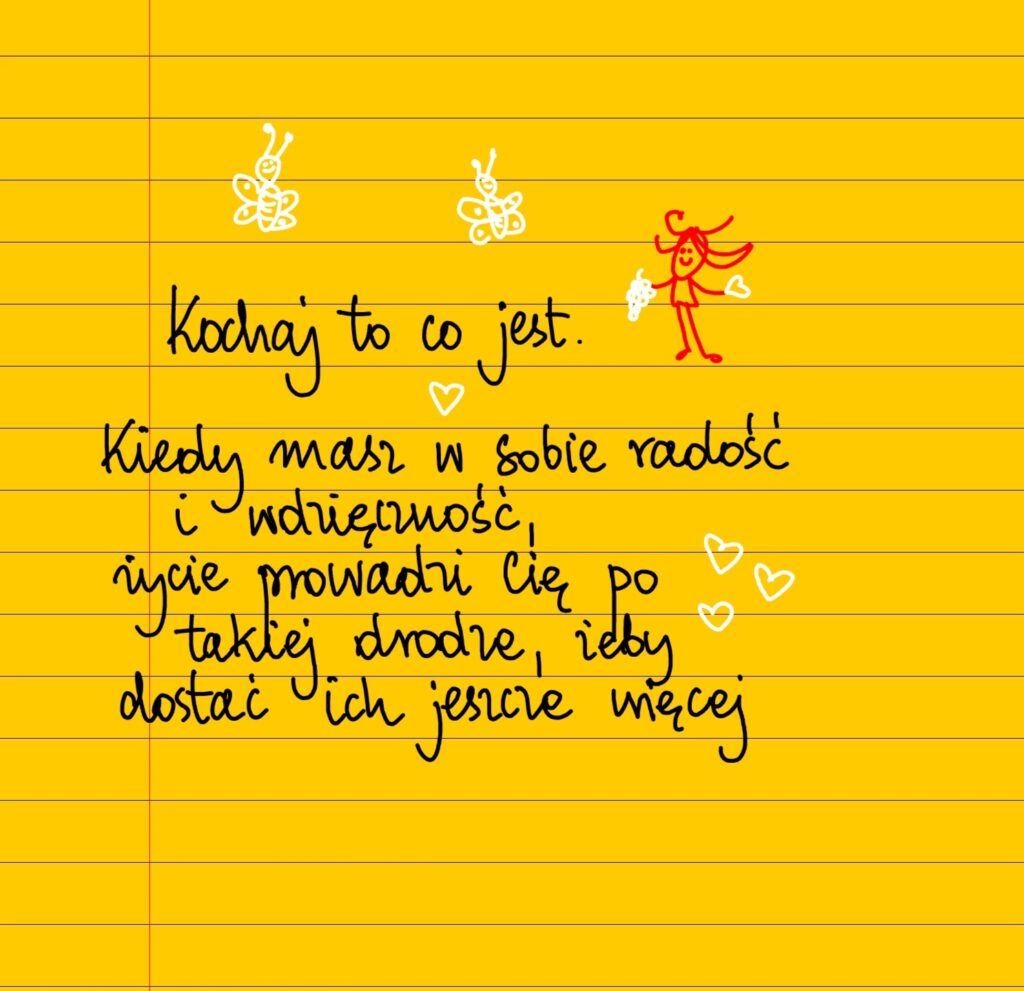 Kochaj to co jest.
Kiedy masz w sobie radość
i wdzięczność,
życie prowadzi Cię po
takiej drodze, żeby
dostać ich jeszcze więcej